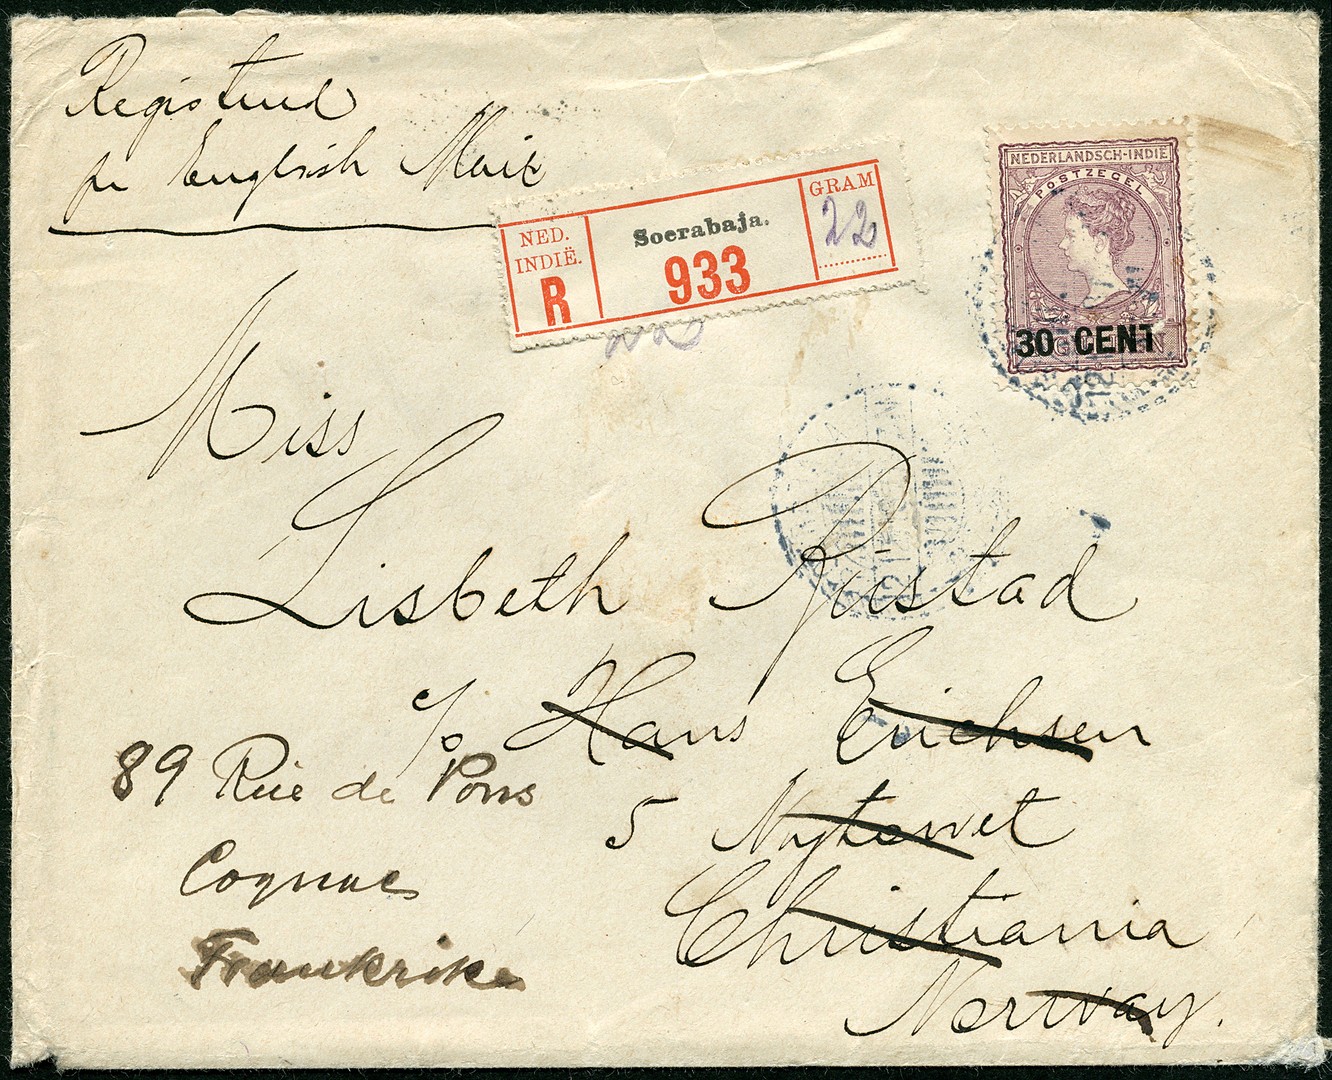 Registered
per English Mail
NED.
INDIË.
R
Soerabaja.
933
GRAM
22
22
NEDERLANDSCH-INDIE
POSTZEGEL
30 CENT
Miss
Lisbeth Rustad
c/o Hans Erichsen
5 Nytorvet
Christiania
Norway.
89 Rue de Pons
Cognac
Frankrike